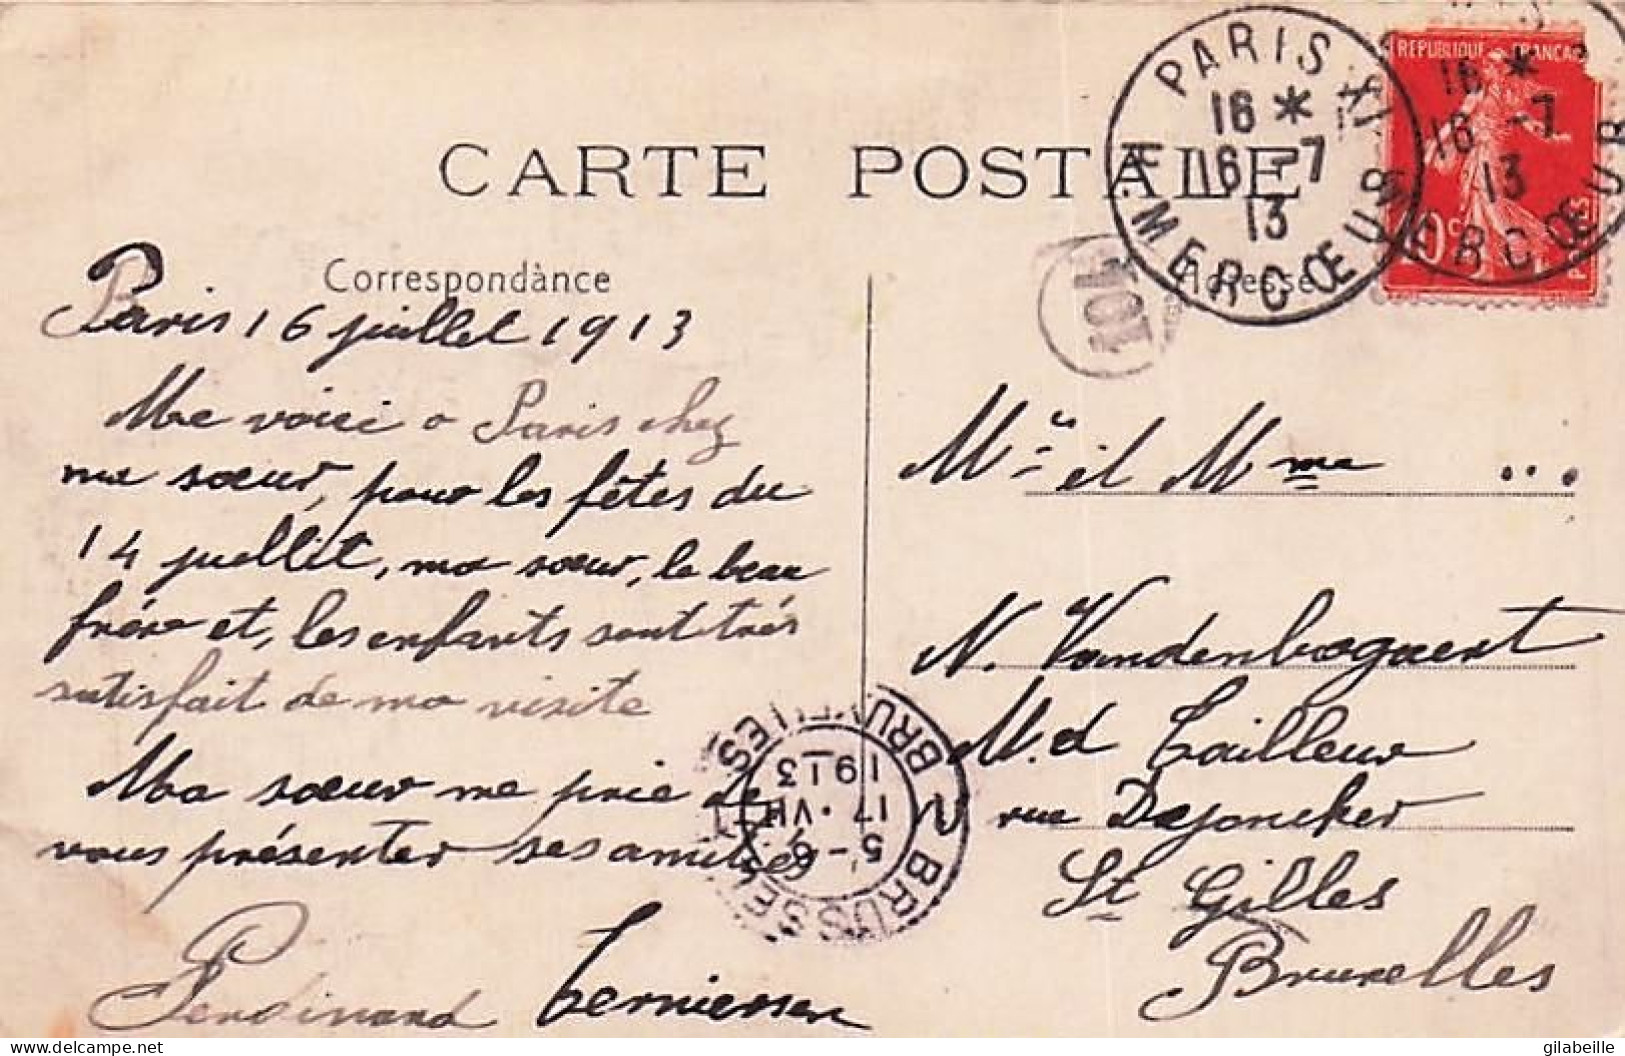 CARTE POSTALE
Correspondànce
Paris 16 juillet 1913
Me voici a Paris chez
ma sœur, pour les fêtes du
14 juillet, ma sœur, le beau
frére et, les enfants sont trés
satisfait de ma visite
Ma sœur me prie de
vous présenter ses amitiés
Ferdinand
Adresse
Mr et Mme ...
N. Vandenbogaert
M.d Tailleur
rue Dejoncker
St Gilles
Bruxelles
PARIS XI
16 *
16 -7
13
R. MERCŒUR
REPUBLIQUE FRANCAISE
10c
POSTES
16 *
16 -7
13
MERCŒUR
BRUXELLES
1913
17 · VII
5 - 6
BRUSSEL
delcampe.net
gilabeille